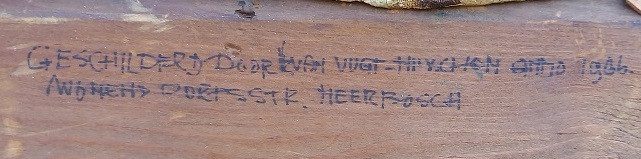 GESCHILDERD DOOR VAN VUGT-HUYCKEN ANNO 1986.
WONEND DORPSSTR. HEERBOSCH